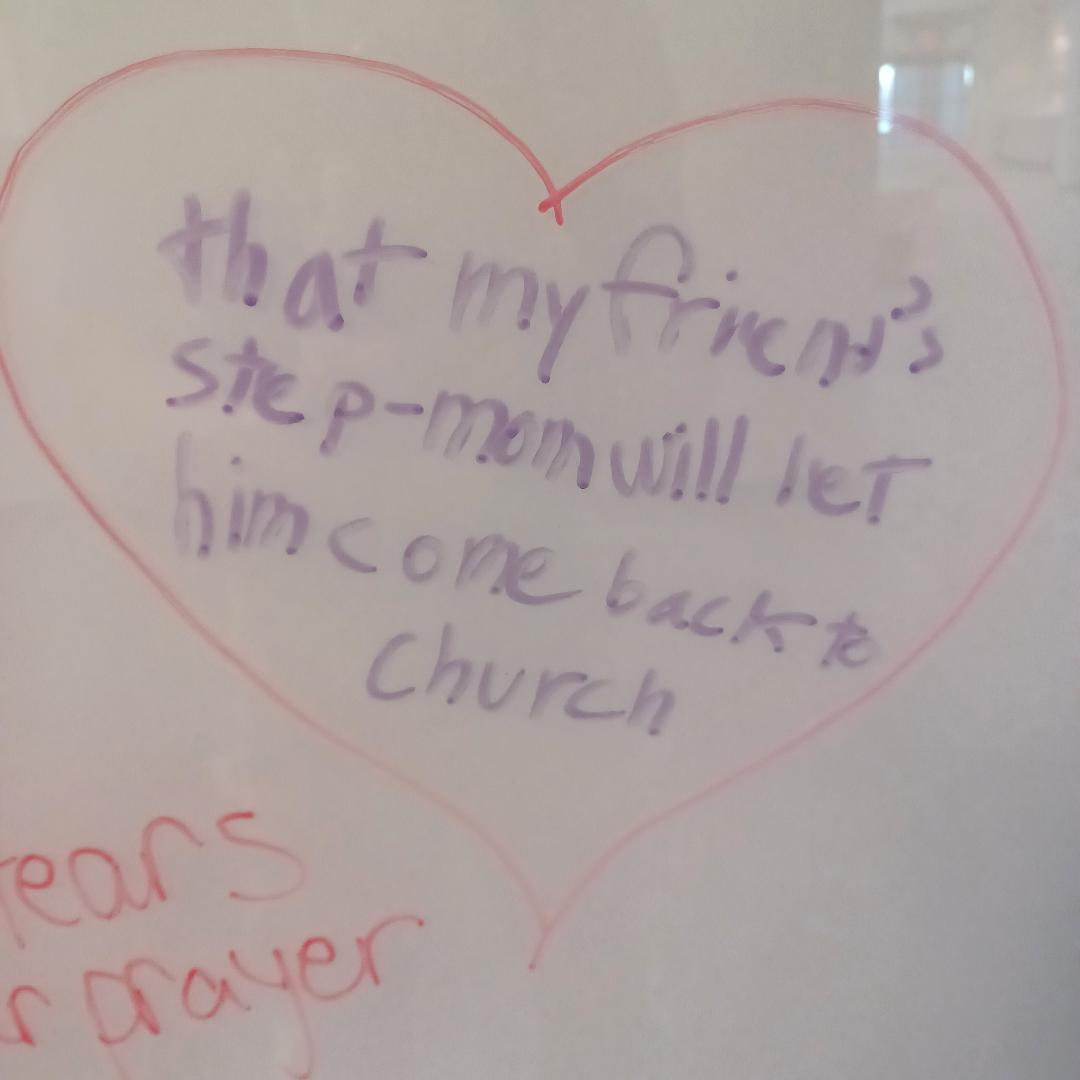 that my friend's
step-mom will let
him come back to
Church
prayer